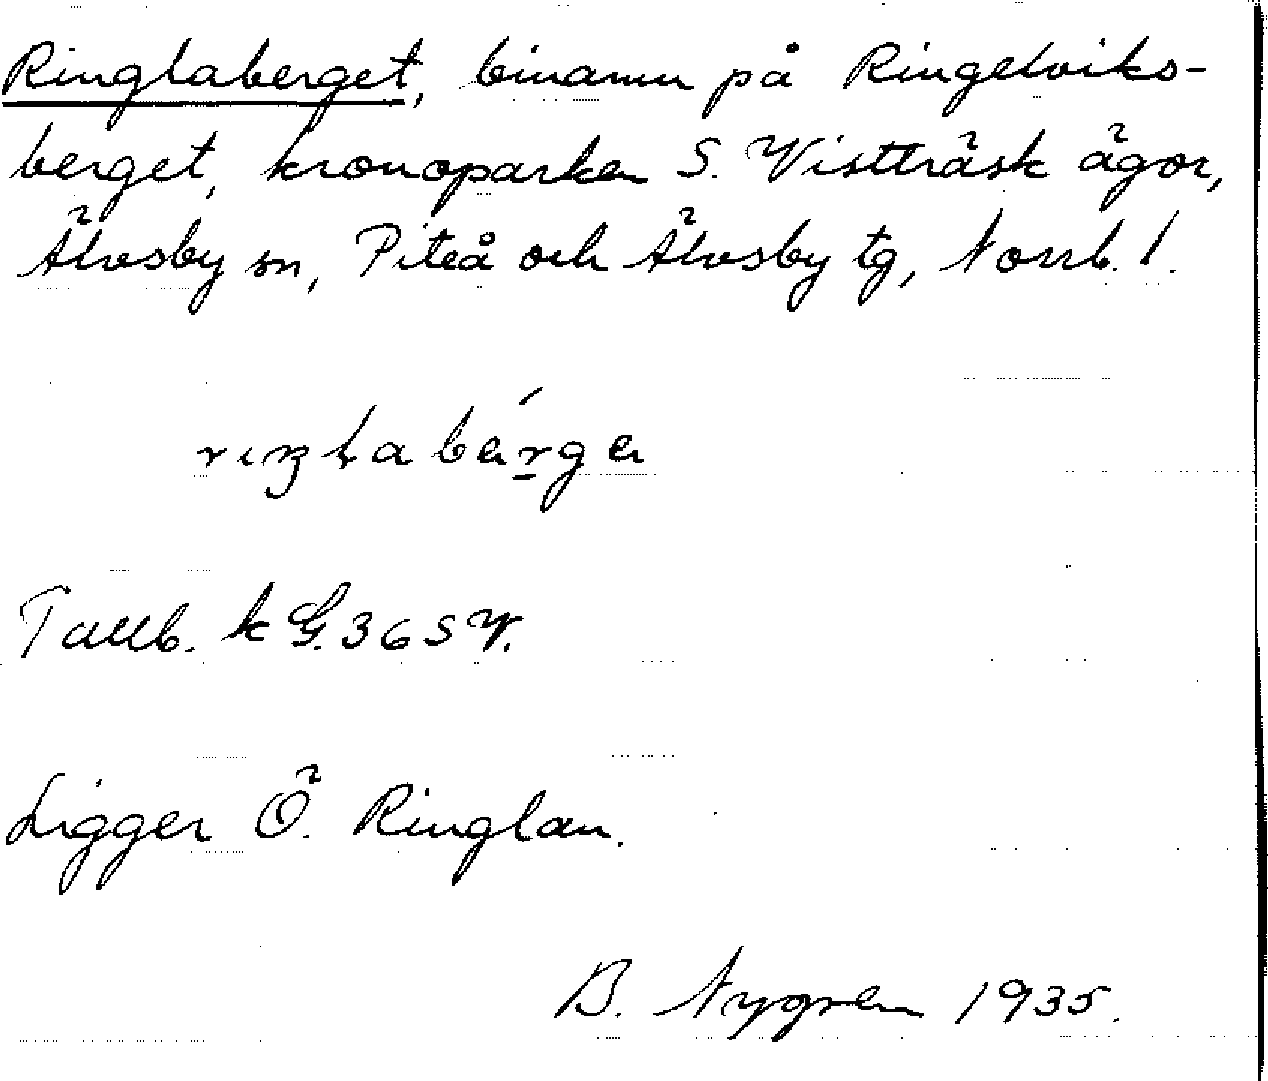 Ringlaberget, binamn på Ringelviks-
berget, kronoparken S. Vistträsk ägor,
Älvsby sn, Piteå och Älvsby tg, Norrb. l.
riŋlabærge
k G. 365 V.
Ligger Ö. Ringlan.
B. Nygren 1935.